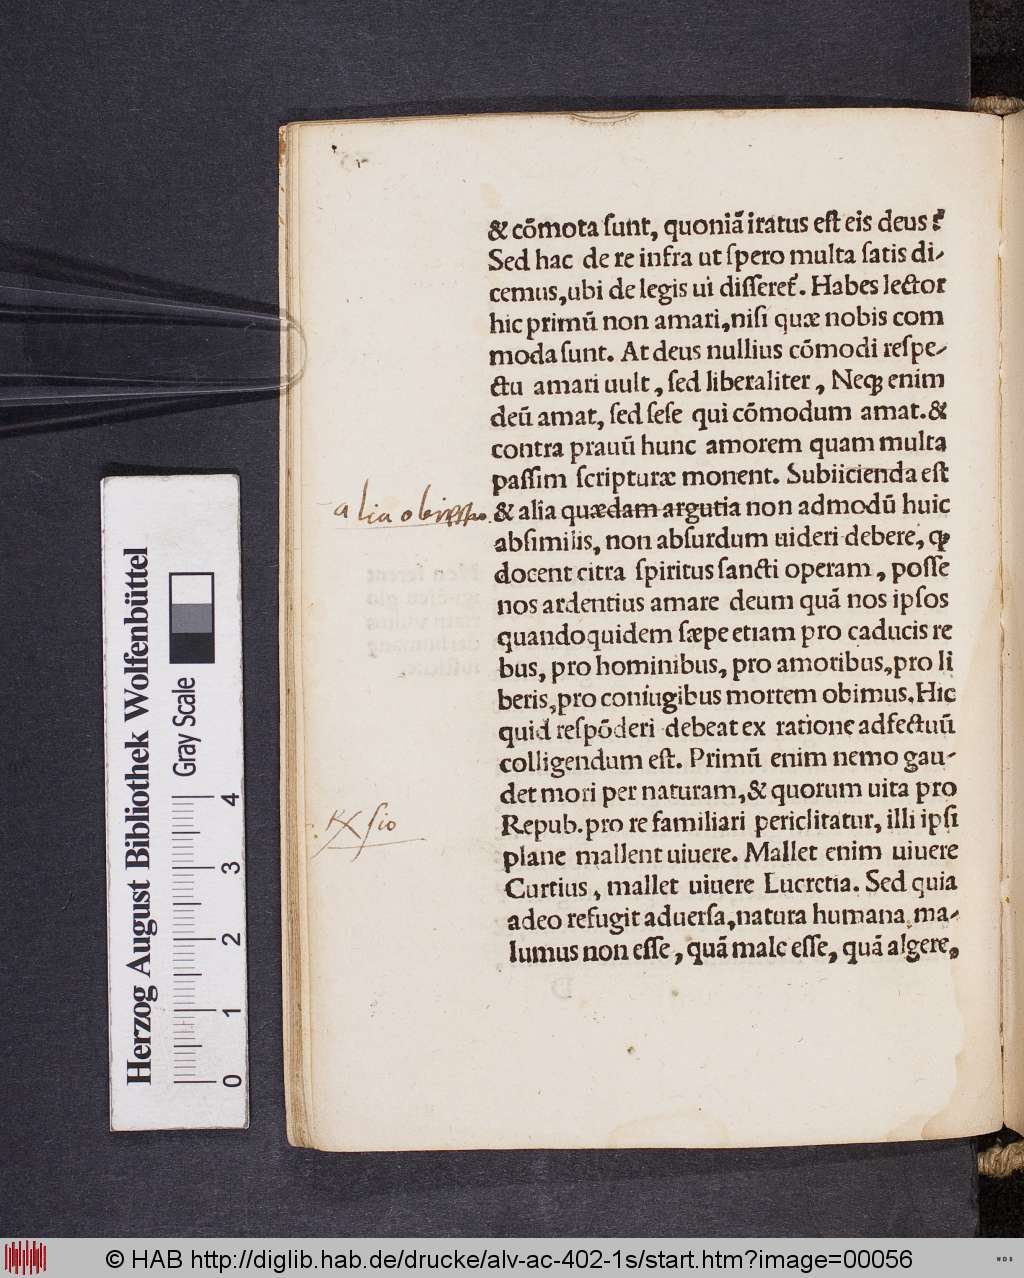 & cōmota ſunt, quoniā iratus eſt eis deus?
Sed hac de re infra ut ſpero multa ſatis di-
cemus, ubi de legis ui diſſeret. Habes lector
hic primū non amari, niſi quæ nobis com
moda ſunt. At deus nullius cōmodi reſpe-
ctu amari uult, ſed liberaliter, Neqꝫ enim
deū amat, ſed ſeſe qui cōmodum amat. &
contra prauū hunc amorem quam multa
paſſim ſcripturæ monent. Subiicienda eſt
& alia quædam argutia non admodū huic
abſimilis, non abſurdum uideri debere, ꝙ
docent citra ſpiritus ſancti operam, poſſe
nos ardentius amare deum quā nos ipſos
quandoquidem ſæpe etiam pro caducis re
bus, pro hominibus, pro amoribus, pro li
beris, pro coniugibus mortem obimus. Hic
quid reſpōderi debeat ex ratione adfectuū
colligendum eſt. Primū enim nemo gau-
det mori per naturam, & quorum uita pro
Repub. pro re familiari periclitatur, illi ipſi
plane mallent uiuere. Mallet enim uiuere
Curtius, mallet uiuere Lucretia. Sed quia
adeo refugit aduerſa, natura humana, ma-
lumus non eſſe, quā male eſſe, quā algere,
alia
Herzog August Bibliothek Wolfenbüttel
Gray Scale
0 1 2 3 4
© HAB http://diglib.hab.de/drucke/alv-ac-402-1s/start.htm?image=00056